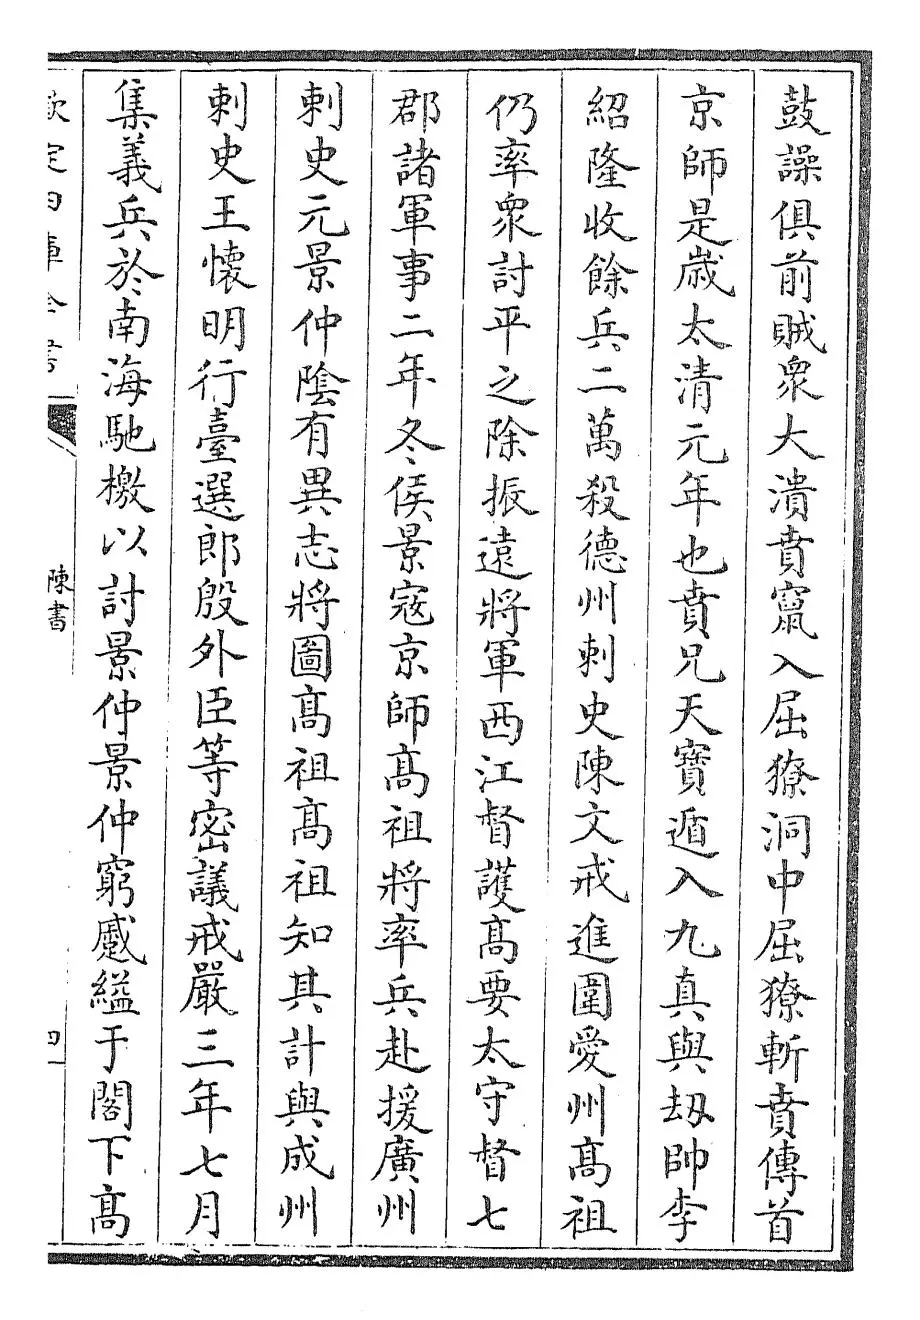 鼓譟俱前賊衆大潰賁竄入屈獠洞中屈獠斬賁傳首
京師是歲太清元年也賁兄天寶遁入九真與刼帥李
紹隆收餘兵二萬殺德州刺史陳文戒進圍愛州髙祖
仍率衆討平之除振遠將軍西江督護髙要太守督七
郡諸軍事二年冬侯景寇京師髙祖將率兵赴援廣州
刺史元景仲陰有異志將圖髙祖髙祖知其計與成州
刺史王懷明行臺選郎殷外臣等密議戒嚴三年七月
集義兵於南海馳檄以討景仲景仲窮蹙縊于閣下髙
欽定四庫全書
陳書
四